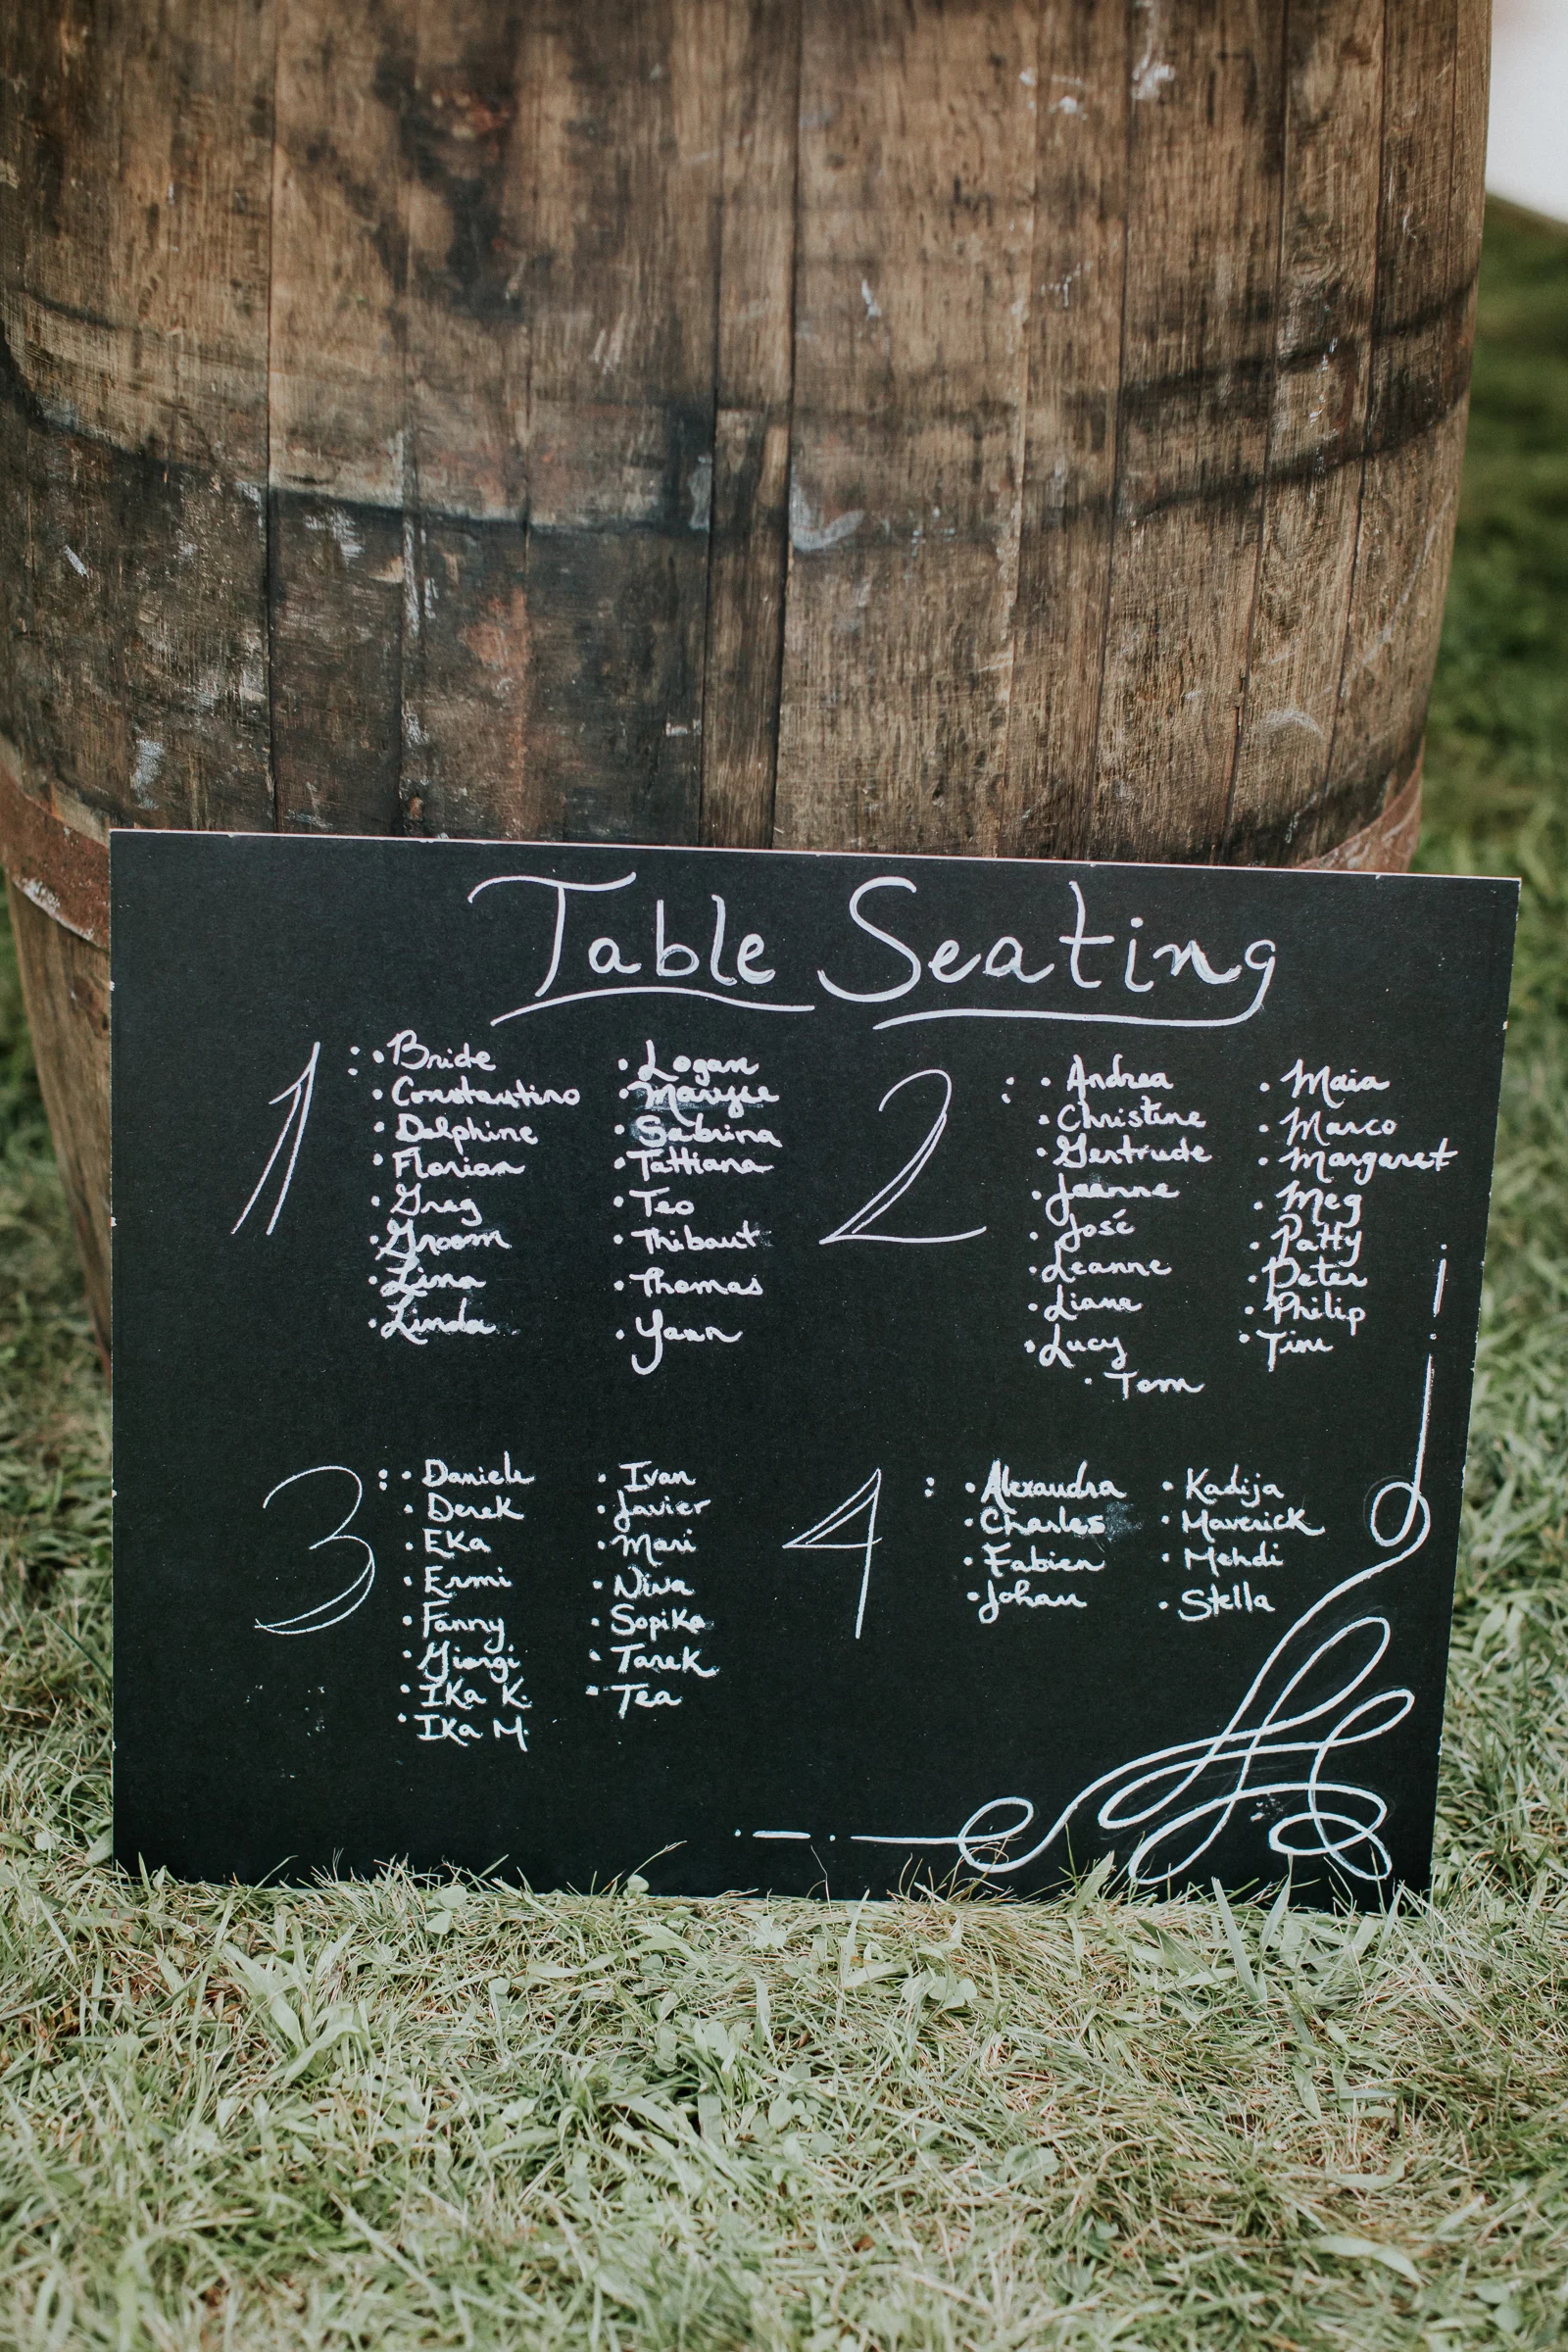 Table Seating
1 :
• Bride
• Constantino
• Delphine
• Florian
• Greg
• Groom
• Lina
• Linda
• Logan
• Maryse
• Sabrina
• Tattiana
• Teo
• Thibaut
• Thomas
• Yann
2 :
• Andrea
• Christine
• Gertrude
• Jeanne
• José
• Leanne
• Liane
• Lucy
• Maia
• Marco
• Margaret
• Meg
• Patty
• Peter
• Philip
• Tim
• Tom
3 :
• Daniele
• Derek
• Eka
• Ermi
• Fanny
• Giorgi
• Ika K.
• Ika M.
• Ivan
• Javier
• Mari
• Nina
• Sopiko
• Tarek
• Tea
4 :
• Alexandra
• Charles
• Fabien
• Johan
• Kadija
• Maverick
• Mehdi
• Stella